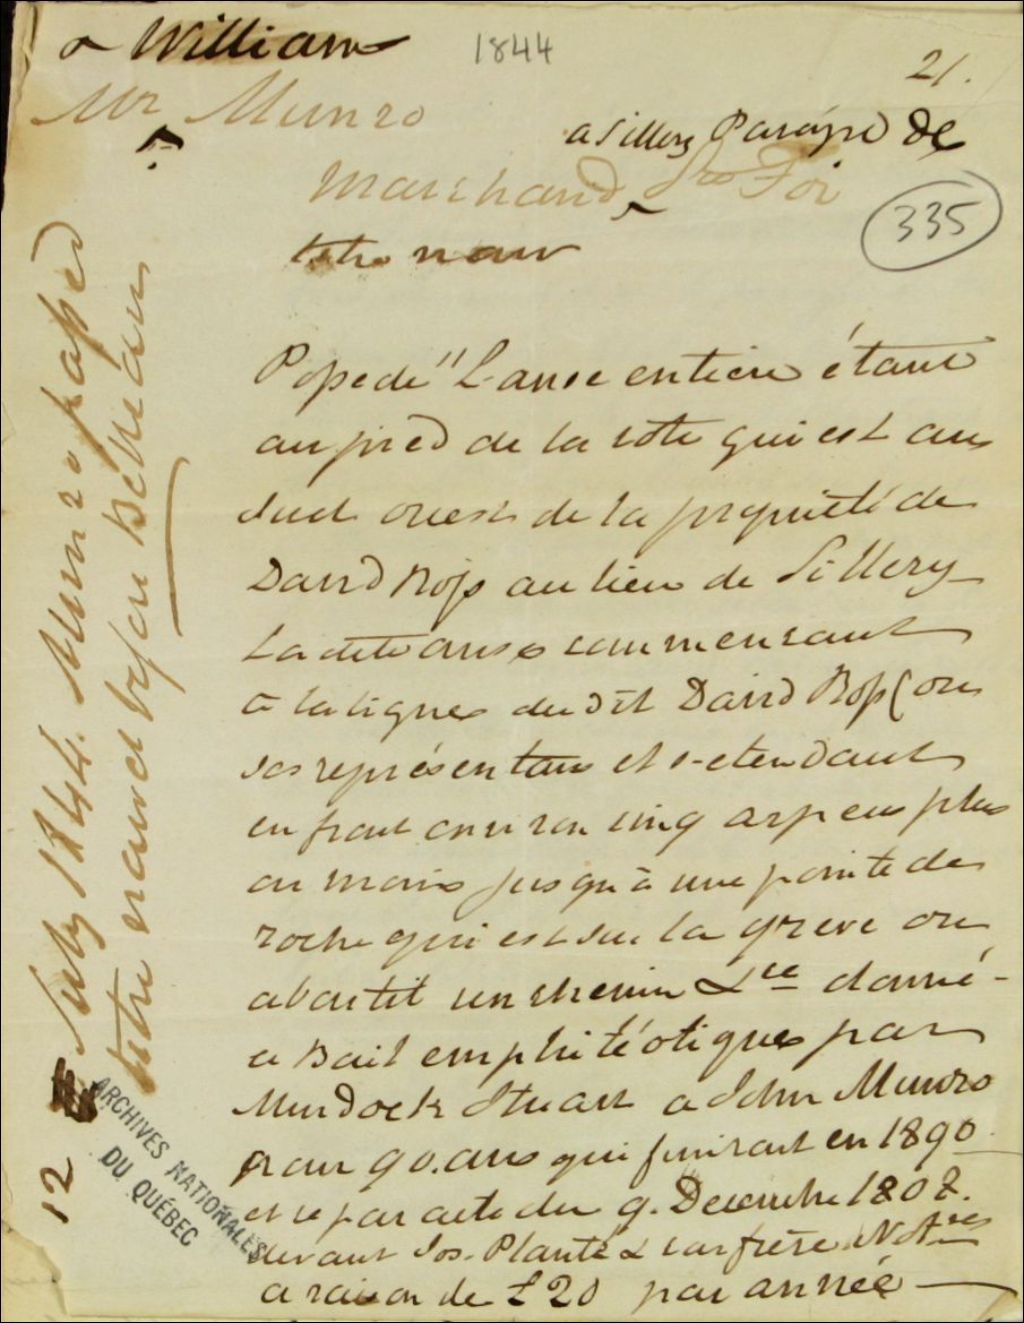 a William
1844
21.
Mr Munro
a Sillery Paroisse de
Marchand, Ste Foi
335
titre nouv
Possede "L'anse entiere étant
au pied de la cote qui est au
sud ouest de la propriété de
David Ross au lieu de Sillery
La dite anse commencant
à la ligne dudit David Ross (ou
ses représentans et s'etendant
en front environ cinq arpens plus
ou moins jusqu'à une pointe de
roche qui est sur la greve ou
aboutit un chemin &ce donné -
a Bail emphitéotique par
Murdock Stuart a John Munro
pour 90. ans qui finiront en 1890
et ce par acte du 9. Decembre 1808.
devant Jos. Planté & confrère Notres
a raison de £20 par année
12 July 1844. Munro passed
titre nouvel before Belleau
ARCHIVES NATIONALES
DU QUÉBEC